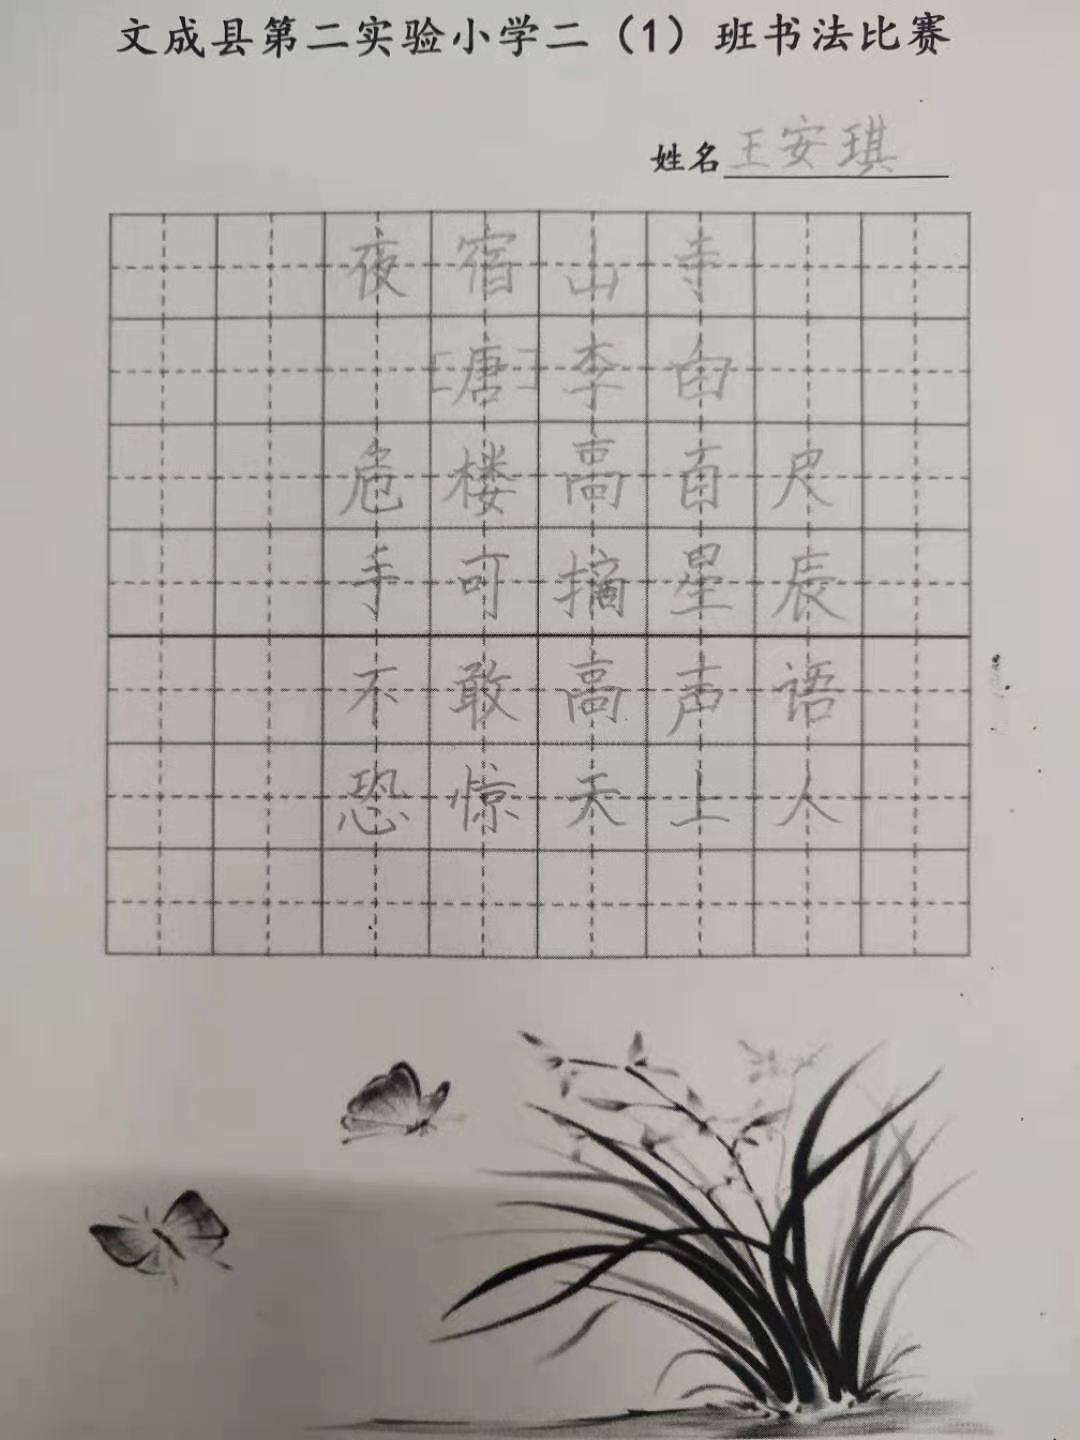 文成县第二实验小学二（1）班书法比赛
姓名 王安琪
夜宿山寺
[唐]李白
危楼高百尺
手可摘星辰
不敢高声语
恐惊天上人